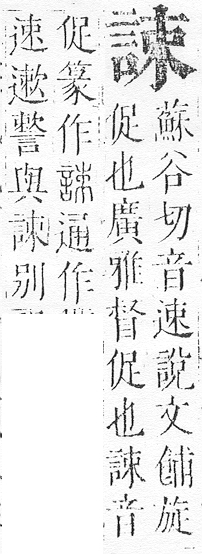 誎
蘇谷切音速説文餔旋
促也廣雅督促也誎音
促篆作誎通作
速遬警與諫别